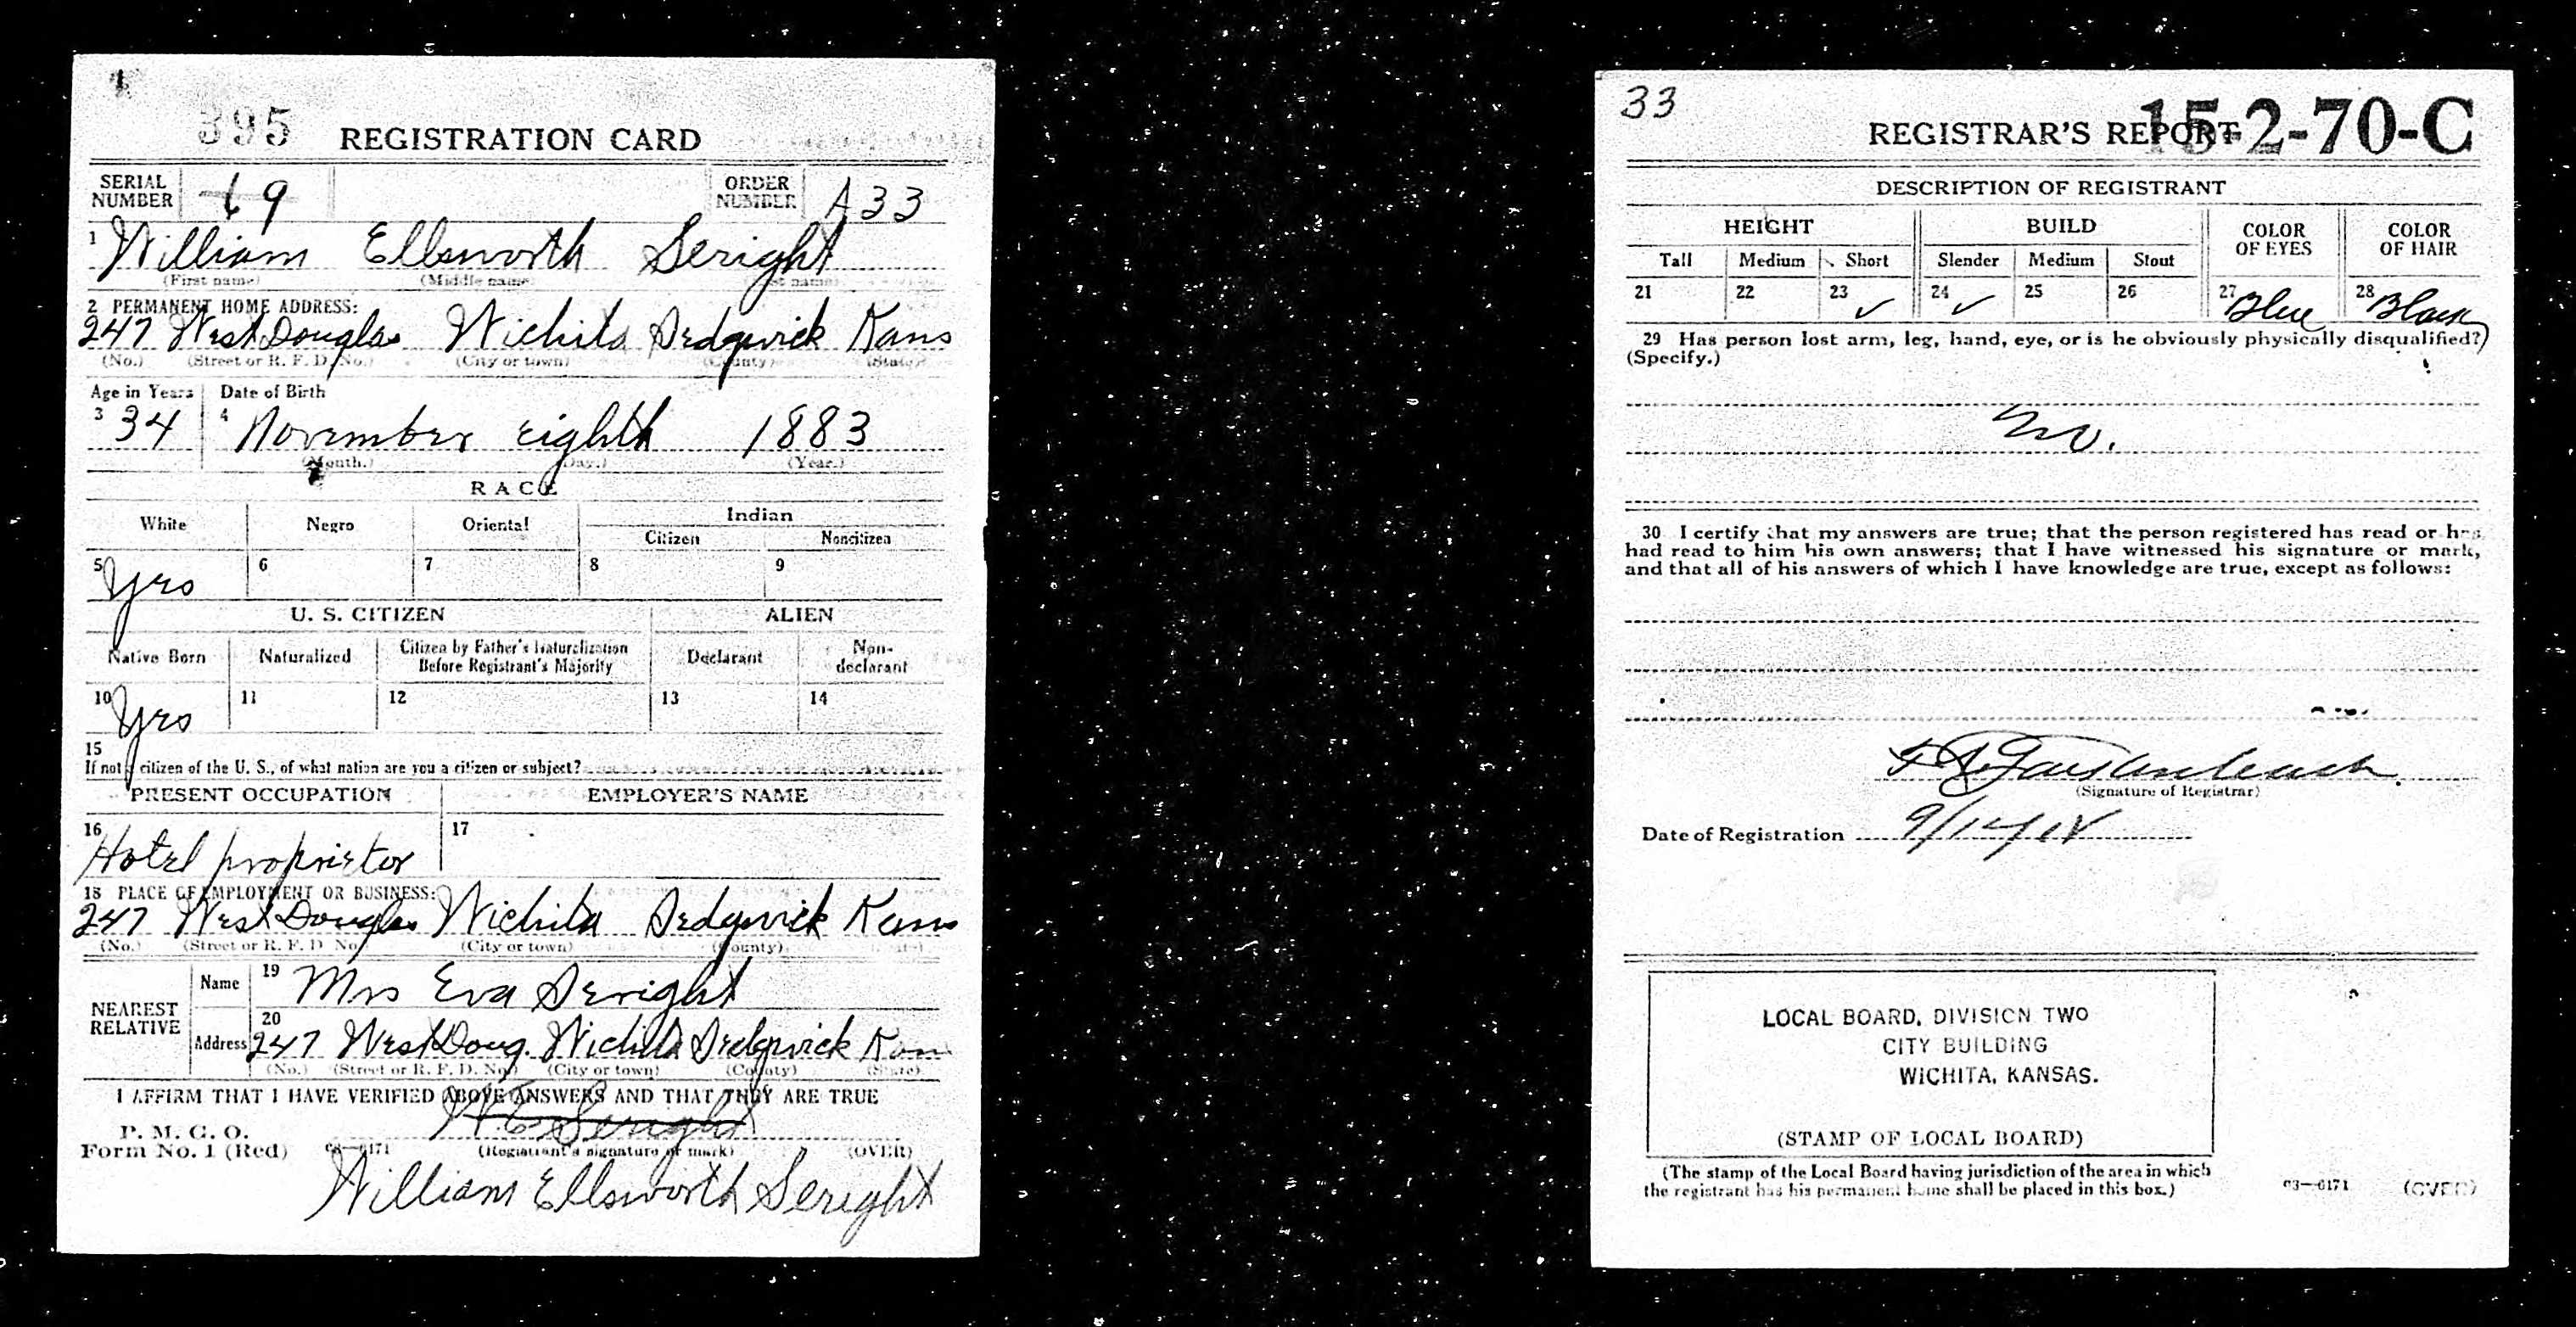 395
REGISTRATION CARD
SERIAL NUMBER 69 ORDER NUMBER A33
1 William Ellsworth Seright
(First name) (Middle name)
2 PERMANENT HOME ADDRESS:
247 West Douglas Wichita Sedgwick Kans
(No.) (Street or R. F. D. No.) (City or town) (County) (State)
Age in Years Date of Birth
3 34 4 November eighth 1883
(Month.) (Day.) (Year.)
RACE
White Negro Oriental Indian
Citizen Noncitizen
5 Yes 6 7 8 9
U. S. CITIZEN ALIEN
Native Born Naturalized Citizen by Father's Naturalization Before Registrant's Majority Declarant Non-declarant
10 Yes 11 12 13 14
15
If not a citizen of the U. S., of what nation are you a citizen or subject?
PRESENT OCCUPATION EMPLOYER'S NAME
16 Hotel proprietor 17
18 PLACE OF EMPLOYMENT OR BUSINESS:
247 West Douglas Wichita Sedgwick Kans
(No.) (Street or R. F. D. No.) (City or town) (County)
NEAREST RELATIVE
Name 19 Mrs Eva Seright
Address 20 247 West Doug. Wichita Sedgwick Kan
(No.) (Street or R. F. D. No.) (City or town) (County) (State)
I AFFIRM THAT I HAVE VERIFIED ABOVE ANSWERS AND THAT THEY ARE TRUE
W. E. Seright
P. M. G. O.
Form No. 1 (Red) 03—6171 (Registrant's signature or mark) (OVER)
William Ellsworth Seright
33
REGISTRAR'S REPORT
15-2-70-C
DESCRIPTION OF REGISTRANT
HEIGHT BUILD COLOR OF EYES COLOR OF HAIR
Tall Medium Short Slender Medium Stout
21 22 23 ✓ 24 ✓ 25 26 27 Blue 28 Black
29 Has person lost arm, leg, hand, eye, or is he obviously physically disqualified?
(Specify.)
No.
30 I certify that my answers are true; that the person registered has read or has
had read to him his own answers; that I have witnessed his signature or mark,
and that all of his answers of which I have knowledge are true, except as follows:
(Signature of Registrar)
Date of Registration
LOCAL BOARD, DIVISION TWO
CITY BUILDING
WICHITA, KANSAS.
(STAMP OF LOCAL BOARD)
(The stamp of the Local Board having jurisdiction of the area in which
the registrant has his permanent home shall be placed in this box.)
03—6171 (OVER)